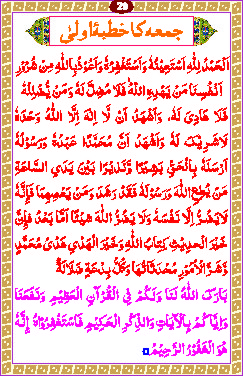 29
جمعہ کا خطبۂ اولیٰ
اَلْحَمْدُ لِلّٰهِ اَسْتَعِيْنُهٗ وَاَسْتَغْفِرُهٗ وَاَعُوْذُ بِاللّٰهِ مِنْ شُرُوْرِ
اَنْفُسِنَا مَنْ يَّهْدِهِ اللّٰهُ فَلَا مُضِلَّ لَهٗ وَمَنْ يُّضْلِلْهُ
فَلَا هَادِيَ لَهٗ، وَاَشْهَدُ اَنْ لَّا اِلٰهَ اِلَّا اللّٰهُ وَحْدَهٗ
لَا شَرِيْكَ لَهٗ وَاَشْهَدُ اَنَّ مُحَمَّدًا عَبْدُهٗ وَرَسُوْلُهٗ
اَرْسَلَهٗ بِالْحَقِّ بَشِيْرًا وَّنَذِيْرًا بَيْنَ يَدَيِ السَّاعَةِ
مَنْ يُّطِعِ اللّٰهَ وَرَسُوْلَهٗ فَقَدْ رَشَدَ وَمَنْ يَّعْصِهِمَا فَاِنَّهٗ
لَا يَضُرُّ اِلَّا نَفْسَهٗ وَلَا يَضُرُّ اللّٰهَ شَيْئًا اَمَّا بَعْدُ فَاِنَّ
خَيْرَ الْحَدِيْثِ كِتَابُ اللّٰهِ وَخَيْرَ الْهَدْيِ هَدْيُ مُحَمَّدٍ
وَّشَرَّ الْاُمُوْرِ مُحْدَثَاتُهَا وَكُلُّ بِدْعَةٍ ضَلَالَةٌ
بَارَكَ اللّٰهُ لَنَا وَلَكُمْ فِي الْقُرْاٰنِ الْعَظِيْمِ وَنَفَعَنَا
وَاِيَّاكُمْ بِالْاٰيَاتِ وَالذِّكْرِ الْحَكِيْمِ فَاسْتَغْفِرُوْهُ اِنَّهٗ
هُوَ الْغَفُوْرُ الرَّحِيْمُ